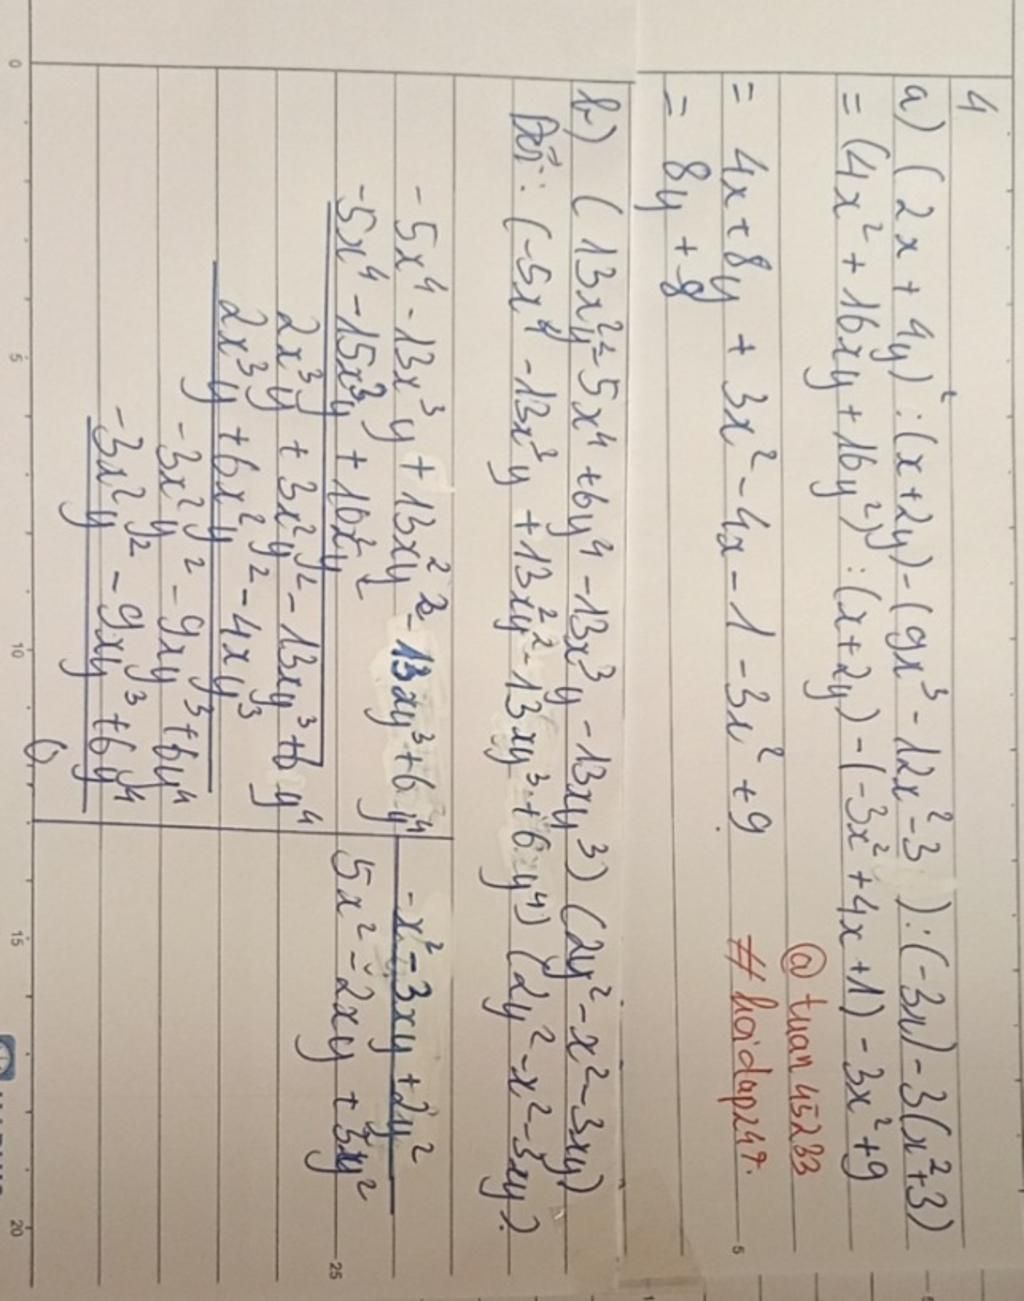 4
a) (2x + 4y)² : (x + 2y) - (9x³ - 12x² - 3 ) : (-3x) - 3(x² + 3)
= (4x² + 16xy + 16y²) : (x + 2y) - (-3x² + 4x + 1) - 3x² + 9
@ tuan 45233
= 4x + 8y + 3x² - 4x - 1 - 3x² + 9
# hoidap247.
= 8y + 8
b) (13x²y² - 5x⁴ + 6y⁴ - 13x³y - 13xy³) (2y² - x² - 3xy)
Đổi : (-5x⁴ - 13x³y + 13x²y² - 13xy³ + 6y⁴) (2y² - x² - 3xy)
- 5x⁴ - 13x³y + 13x²y² - 13xy³ + 6y⁴ | -x² - 3xy + 2y²
-5x⁴ - 15x³y + 10x²y² | 5x² - 2xy + 3y²
2x³y + 3x²y² - 13xy³ + 6y⁴
2x³y + 6x²y² - 4xy³
- 3x²y² - 9xy³ + 6y⁴
- 3x²y² - 9xy³ + 6y⁴
0
0 5 10 15 20
5
25